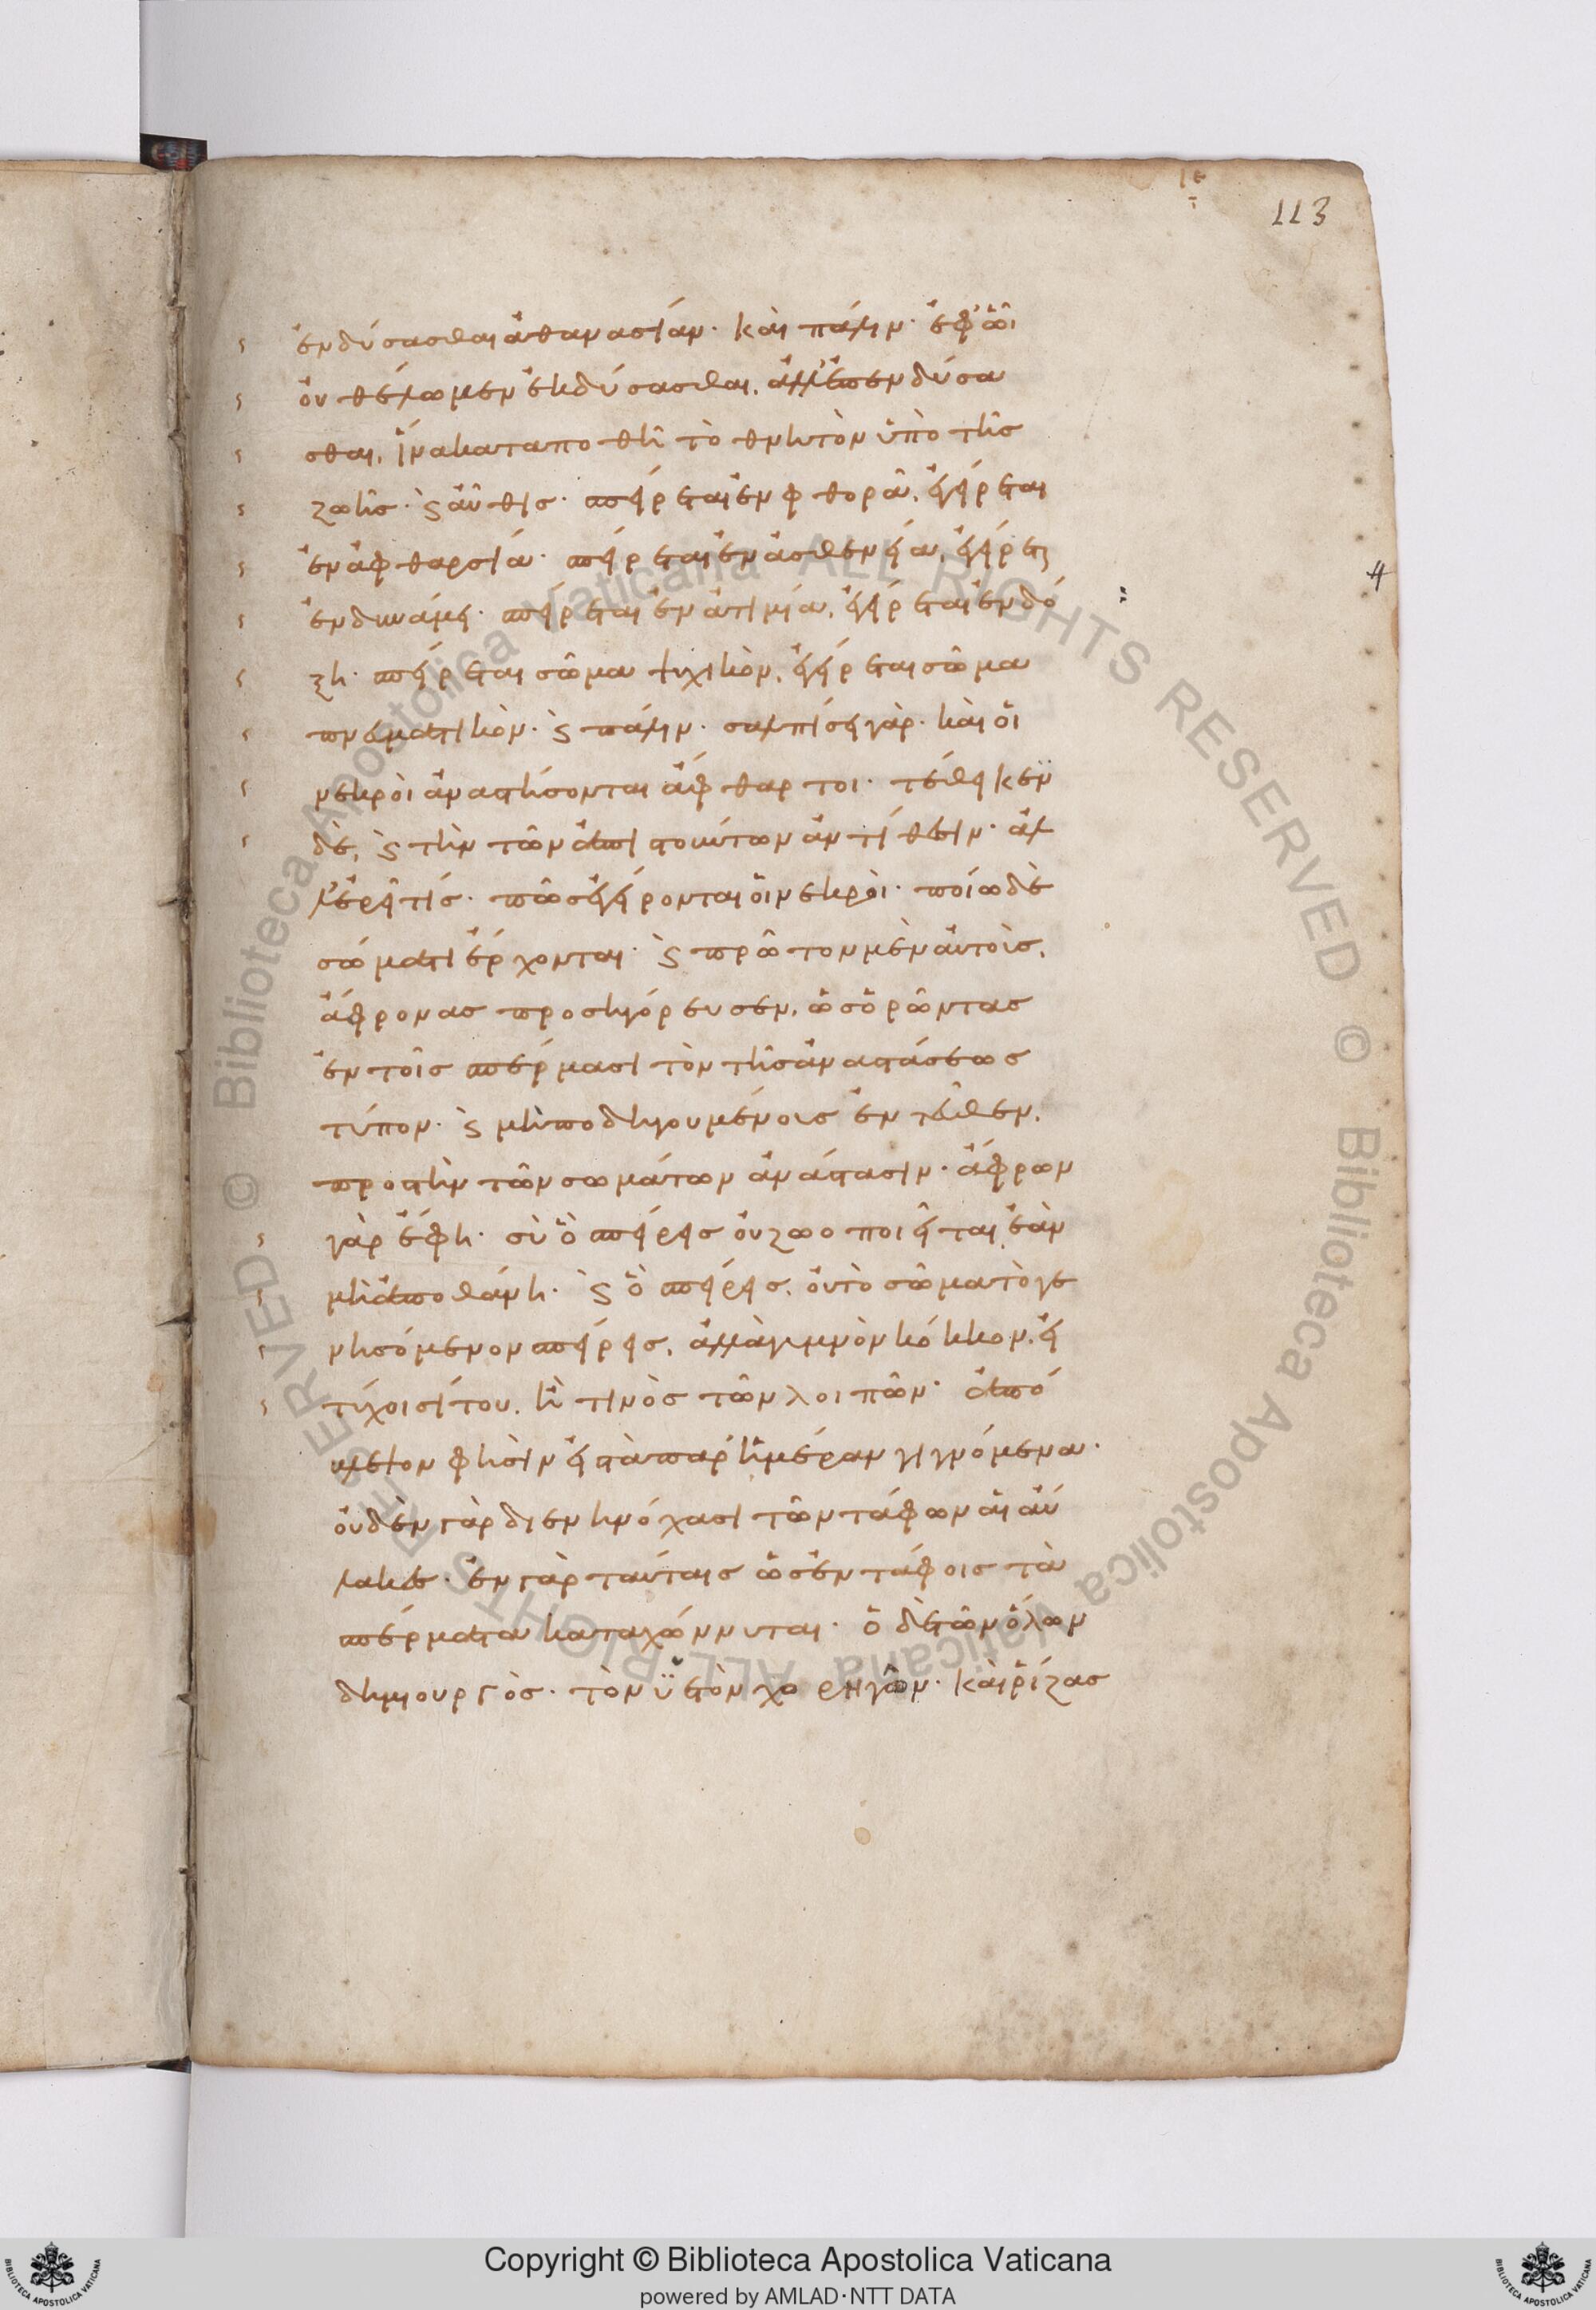 ιε
113
ἐνδύσασθαι ἀθανασίαν· καὶ πάλιν· ἐφ' ὧι
οὐ θέλωμεν ἐκδύσασθαι, ἀλλ' ἐπενδύσα
σθαι, ἵνα καταποθῆ τὸ θνητὸν ὑπὸ τῆς
ζωῆς· ϗ αὖθις· σπείρεται ἐν φθορᾶ, ἐγείρεται
ἐν ἀφθαρσία· σπείρεται ἐν ἀσθενεία, ἐγείρεται
ἐν δυνάμει· σπείρεται ἐν ἀτιμία, ἐγείρεται ἐν δό
ξη· σπείρεται σῶμα ψυχικόν, ἐγείρεται σῶμα
πνευματικόν· ϗ πάλιν· σαλπίσει γάρ· καὶ οἱ
νεκροὶ ἀναστήσονται ἄφθαρτοι· τέθεικεν
δὲ, ϗ τὴν τῶν ἀπιστούντων ἀντίθεσιν· ἀλ
λ' ἐρεῖ τίς· πῶς ἐγείρονται οἱ νεκροὶ· ποίω δὲ
σώματι ἔρχονται· ϗ πρῶτον μὲν αὐτοὶς,
ἄφρονας προσηγόρευσεν, ὡς ὁρῶντας
ἐν τοῖς σπέρμασι τὸν τῆς ἀναστάσεως
τύπον· ϗ μὴ ποδηγουμένοις ἐντεῦθεν,
προς τὴν τῶν σωμάτων ἀνάστασιν· ἄφρων
γὰρ ἔφη· σὺ ὃ σπείρεις οὐ ζωοποιεῖται, ἐὰν
μὴ ἀποθάνη· ϗ ὃ σπείρεις, οὐ τὸ σῶμα τὸ γε
νησόμενον σπείρεις, ἀλλὰ γυμνὸν κόκκον, εἰ
τύχοι σίτου, ἢ τινὸς τῶν λοιπῶν· ἀπό
βλεψον φησὶν εἰς τὰ παρ' ἡμέραν γιγνόμενα·
οὐδὲν γὰρ διενηνόχασι τῶν τάφων αἱ αὔ
λακες· ἐν γὰρ ταύταις ὡς ἐν τάφοις τὰ
σπέρματα καταχώννυται· ὁ δὲ τῶν ὅλων
δημιουργὸς· τὸν ὑετὸν χορηγῶν· καὶ ῥίζας
Copyright © Biblioteca Apostolica Vaticana
powered by AMLAD·NTT DATA